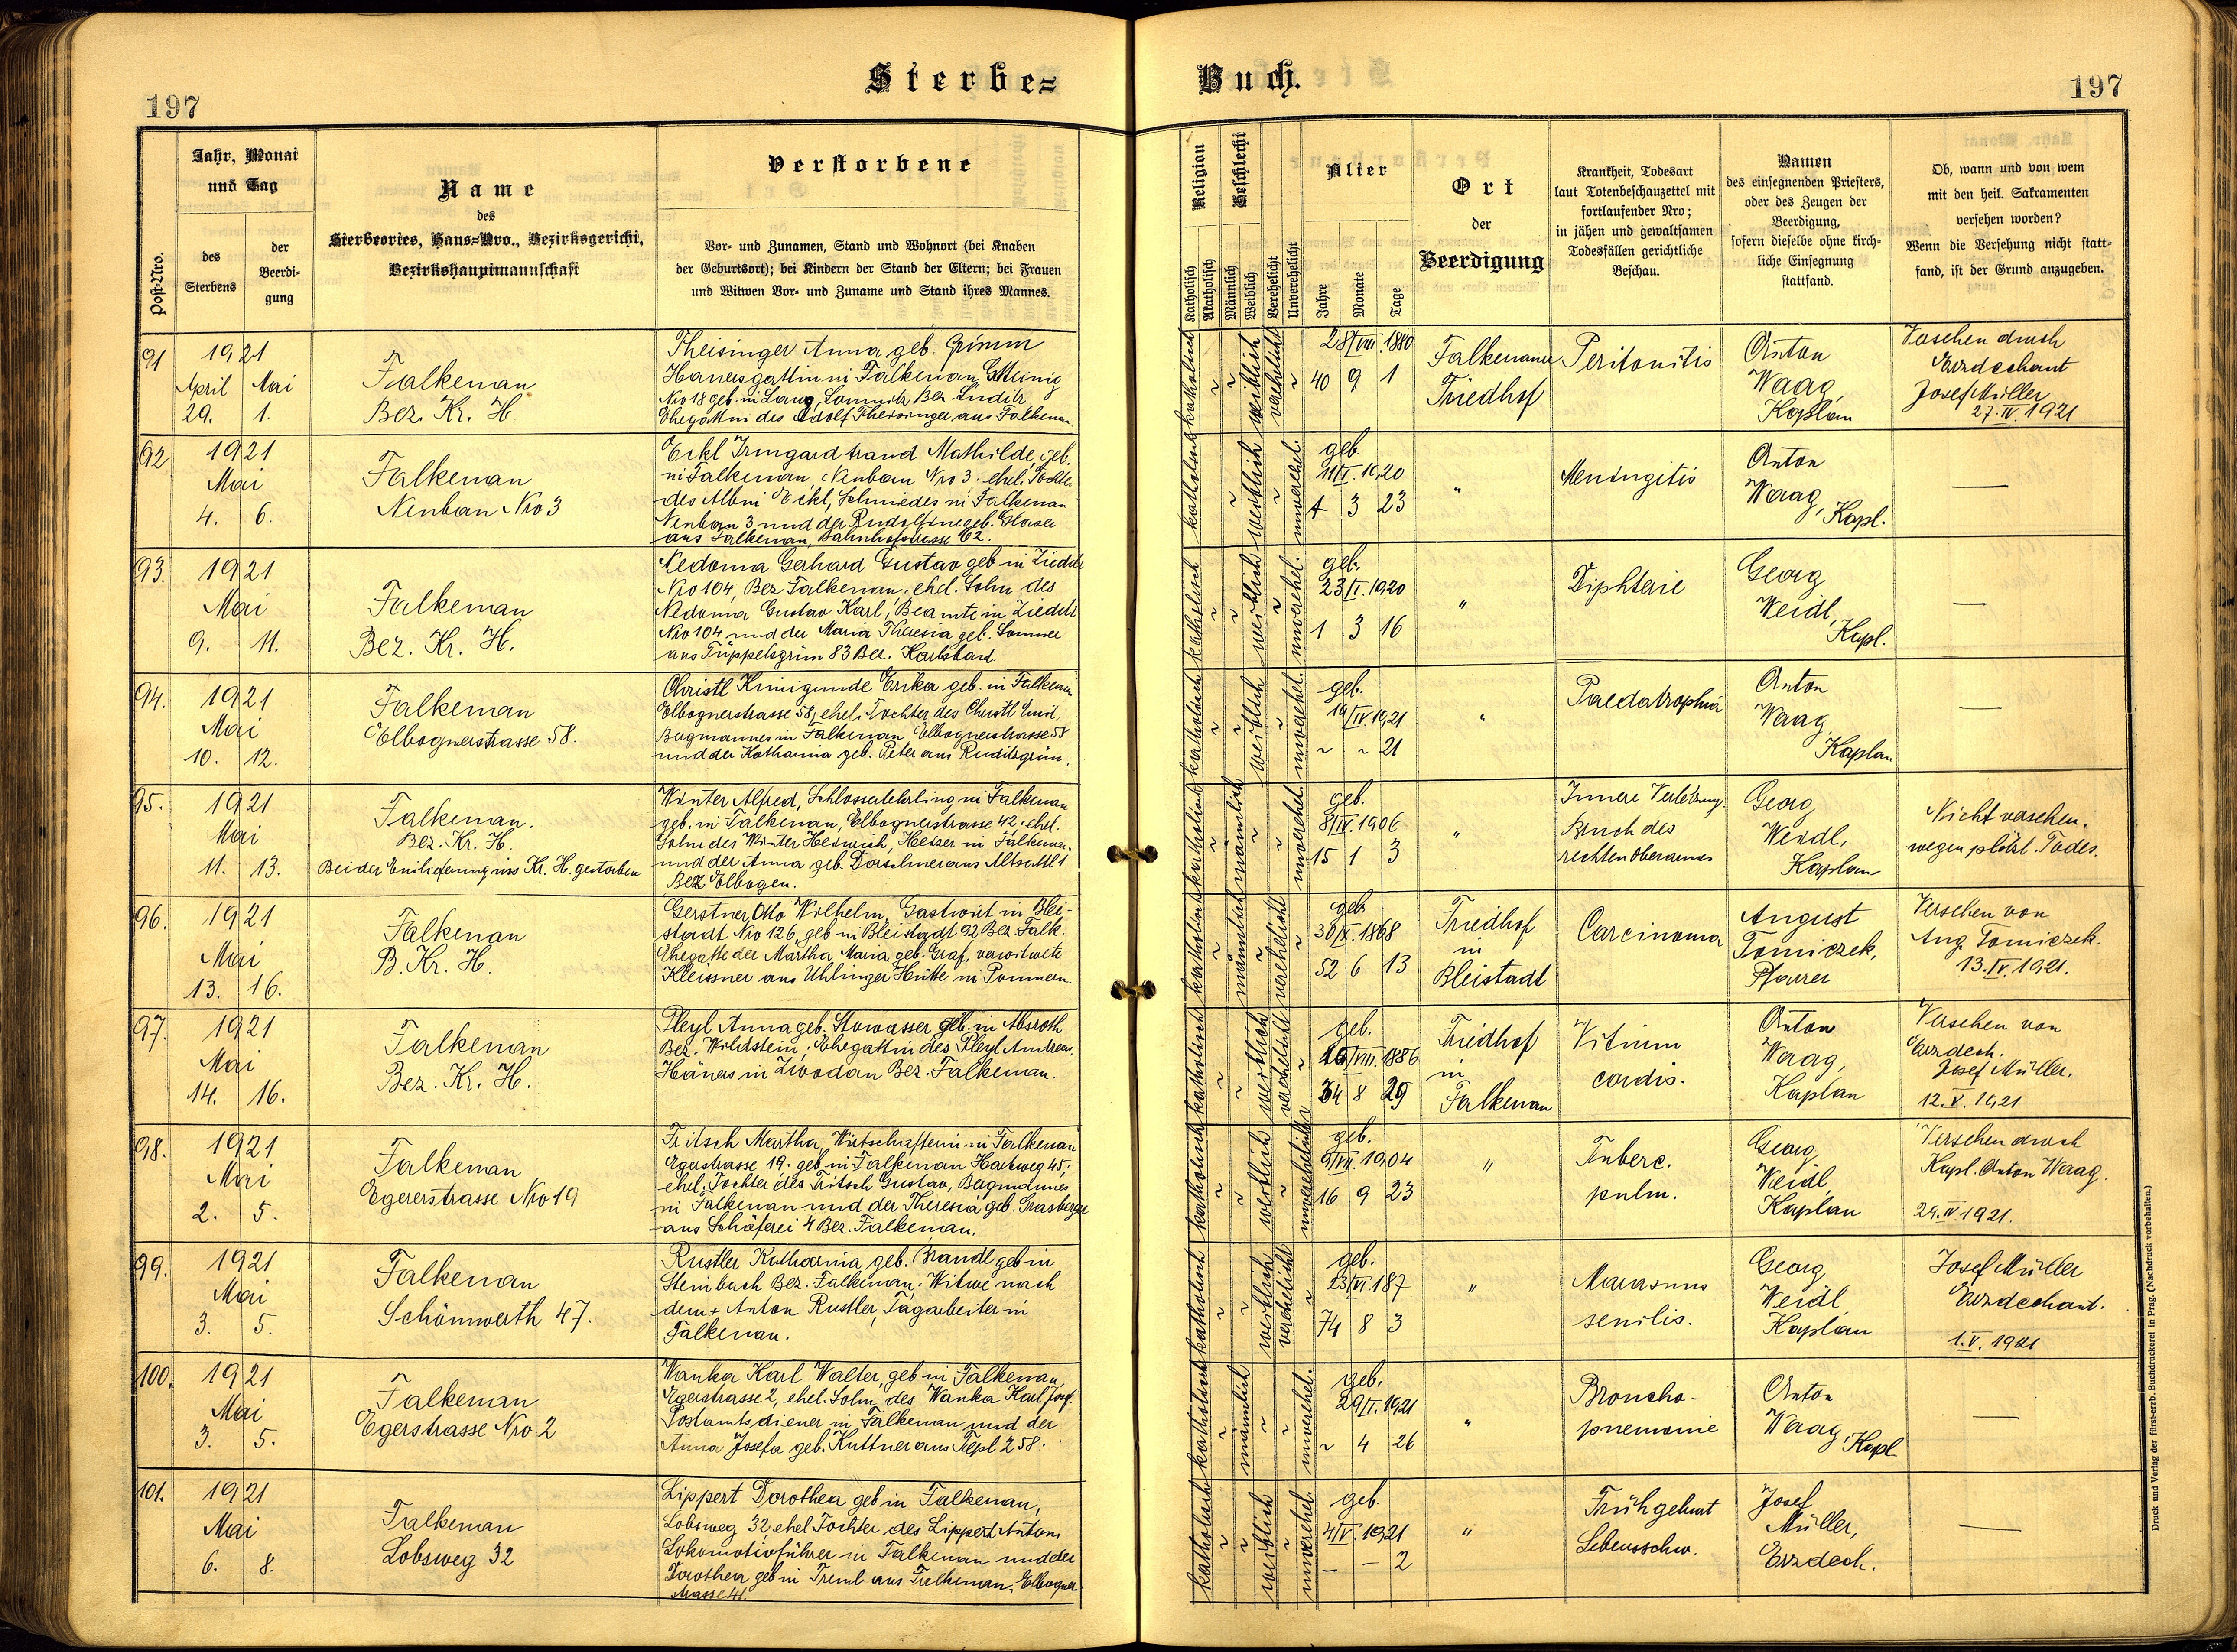 Sterbe=
Buch.
197
197
Jahr, Monat
und Tag
Post-Nro.
des
Sterbens
der
Beerdi-
gung
Name
des
Sterbeortes, Haus=Nro., Bezirksgericht,
Bezirkshauptmannschaft
Verstorbene
Vor- und Zunamen, Stand und Wohnort (bei Knaben
der Geburtsort); bei Kindern der Stand der Eltern; bei Frauen
und Witwen Vor- und Zuname und Stand ihres Mannes.
Religion
Katholisch
Akatholisch
Geschlecht
Männlich
Weiblich
Verehelicht
Unverehelicht
Alter
Jahre
Monate
Tage
Ort
der
Beerdigung
Krankheit, Todesart
laut Totenbeschauzettel mit
fortlaufender Nro;
in jähen und gewaltsamen
Todesfällen gerichtliche
Beschau.
Namen
des einsegnenden Priesters,
oder des Zeugen der
Beerdigung,
sofern dieselbe ohne kirch-
liche Einsegnung
stattfand.
Ob, wann und von wem
mit den heil. Sakramenten
versehen worden?
Wenn die Versehung nicht statt-
fand, ist der Grund anzugeben.
91
1921
April Mai
29. 1.
Falkenau
Bez. Kr. H.
Theisinger Anna geb. Grimm
Hauersgattin in Falkenau
Nro 18 geb. in Bez. Luditz
Ehegattin des Adolf Theisinger aus Falkenau
katholisch weiblich verehelicht
28/VII. 1880
40 9 1
Falkenauer
Friedhof
Peritonitis
Anton
Waag,
Kaplan
Versehen durch
Erzdechant
Josef Müller
27. IV. 1921
92
1921
Mai
4. 6.
Falkenau
Neubau Nro 3
Eckl Irmgard Mathilde, geb.
in Falkenau, Neubau Nro 3. ehel. Tochter
des Albin Eckl, Schmiedes in Falkenau
Neubau 3 und der Rudolfine geb. Glaser
aus Falkenau, Bahnhofstrasse 62.
katholisch weiblich unverehel.
geb.
11/I. 1920
1 3 23
"
Meningitis
Anton
Waag, Kapl.
—
93.
1921
Mai
9. 11.
Falkenau
Bez. Kr. H.
Nedoma Gerhard Gustav geb in Zieditz
Nro 104, Bez Falkenau. ehel. Sohn des
Nedoma Gustav Karl, Beamte in Zieditz
Nro 104 und der Maria Theresia geb. Sommer
aus Tüppelsgrün 83 Bez. Karlsbad.
katholisch weiblich unverehel.
geb.
23/I. 1920
1 3 16
"
Diphterie
Georg
Weidl,
Kapl.
—
94.
1921
Mai
10. 12.
Falkenau
Elbognerstrasse 58.
Christl Kunigunde Erika geb. in Falkenau
Elbognerstrasse 58, ehel. Tochter des Christl Emil
Bergmannes in Falkenau Elbognerstrasse 58
und der Katharina geb. Peter aus Ruditzgrün.
katholisch weiblich unverehel.
geb.
19/IV. 1921
~ ~ 21
"
Paedatrophia
Anton
Waag
Kaplan
—
95.
1921
Mai
11. 13.
Falkenau.
Bez. Kr. H.
Bei der Einlieferung ins Kr. H. gestorben
Winter Alfred, Schlosserlehrling in Falkenau
geb. in Falkenau, Elbognerstrasse 42. ehel.
Sohn des Winter Heinrich, Heizer in Falkenau
und der Anna geb. aus Altsattl 1
Bez Elbogen.
katholisch männlich unverehel.
geb.
8/IV. 1906
15 1 3
"
Innere Verletzung.
Bruch des
rechten Oberarmes
Georg
Weidl,
Kaplan
Nicht versehen.
wegen plötzl. Todes.
96.
1921
Mai
13. 16.
Falkenau
B. Kr. H.
Gerstner Otto Wilhelm, Gastwirt in Blei-
stadt Nro 126, geb in Bleistadt 92 Bez. Falk.
Ehegatte der Martha Maria geb. Graf, verwitwete
Kleissner aus Uhlinger Hütte in Pommern.
katholisch männlich verehelicht
geb
30/X. 1868
52 6 13
Friedhof
in
Bleistadt
Carcinoma
August
Tomiczek,
Pfarrer
Versehen von
Aug Tomiczek.
13. IV. 1921.
97.
1921
Mai
14. 16.
Falkenau
Bez. Kr. H.
Pleyl Anna geb. Stowasser geb. in Absroth
Bez. Wildstein, Ehegattin des Pleyl Andreas,
Hauers in Zwodau Bez. Falkenau.
katholisch weiblich verehelicht
geb.
15/VIII. 1886
34 8 29
Friedhof
in
Falkenau
Vitium
cordis.
Anton
Waag,
Kaplan
Versehen von
Erzdech.
Josef Müller.
12. V. 1921
98.
1921
Mai
2. 5.
Falkenau
Egererstrasse Nro 19
Fritsch Martha, Wirtschafterin in Falkenau
Egerstrasse 19. geb. in Falkenau 45.
ehel. Tochter des Fritsch Gustav, Bergmannes
in Falkenau und der Theresia geb. Grasberger
aus Schäferei 4 Bez. Falkenau.
katholisch weiblich unverehelicht
geb.
9/VII. 1904
16 9 23
"
Tuberc.
pulm.
Georg
Weidl,
Kaplan
Versehen durch
Kapl. Anton Waag.
29. IV 1921.
99.
1921
Mai
3. 5.
Falkenau
Schönwerth 47.
Rustler Katharina geb. Brandl geb in
Steinbach Bez. Falkenau, Witwe nach
dem + Anton Rustler, Tagarbeiter in
Falkenau.
katholisch weiblich verehelicht
geb.
23/VI. 187
74 8 3
"
Marasmus
senilis.
Georg
Weidl
Kaplan
Josef Müller
Erzdechant.
1. V. 1921
100.
1921
Mai
3. 5.
Falkenau
Egerstrasse Nro 2
Wanka Karl Walter, geb in Falkenau,
Egerstrasse 2, ehel. Sohn des Wanka Karl Josef
Postamtsdiener in Falkenau und der
Anna Josefa geb. Kuttner aus Tepl 258.
katholisch männlich unverehel.
geb.
29/I. 1921
~ 4 26
"
Broncho-
pnemonie
Anton
Waag, Kapl
—
101.
1921
Mai
6. 8.
Falkenau
Lobsweg 32
Lippert Dorothea geb in Falkenau,
Lobsweg 32, ehel Tochter des Lippert Anton,
Lokomotivführer in Falkenau und der
Dorothea geb in Treml aus Falkenau, Elbogner-
strasse 41.
katholisch weiblich unverehel.
geb.
4/V. 1921
— — 2
"
Frühgeburt
Lebensschw.
Josef
Müller,
Erzdech.
—
Druck und Verlag der fürst-erzb. Buchdruckerei in Prag. (Nachdruck vorbehalten.)